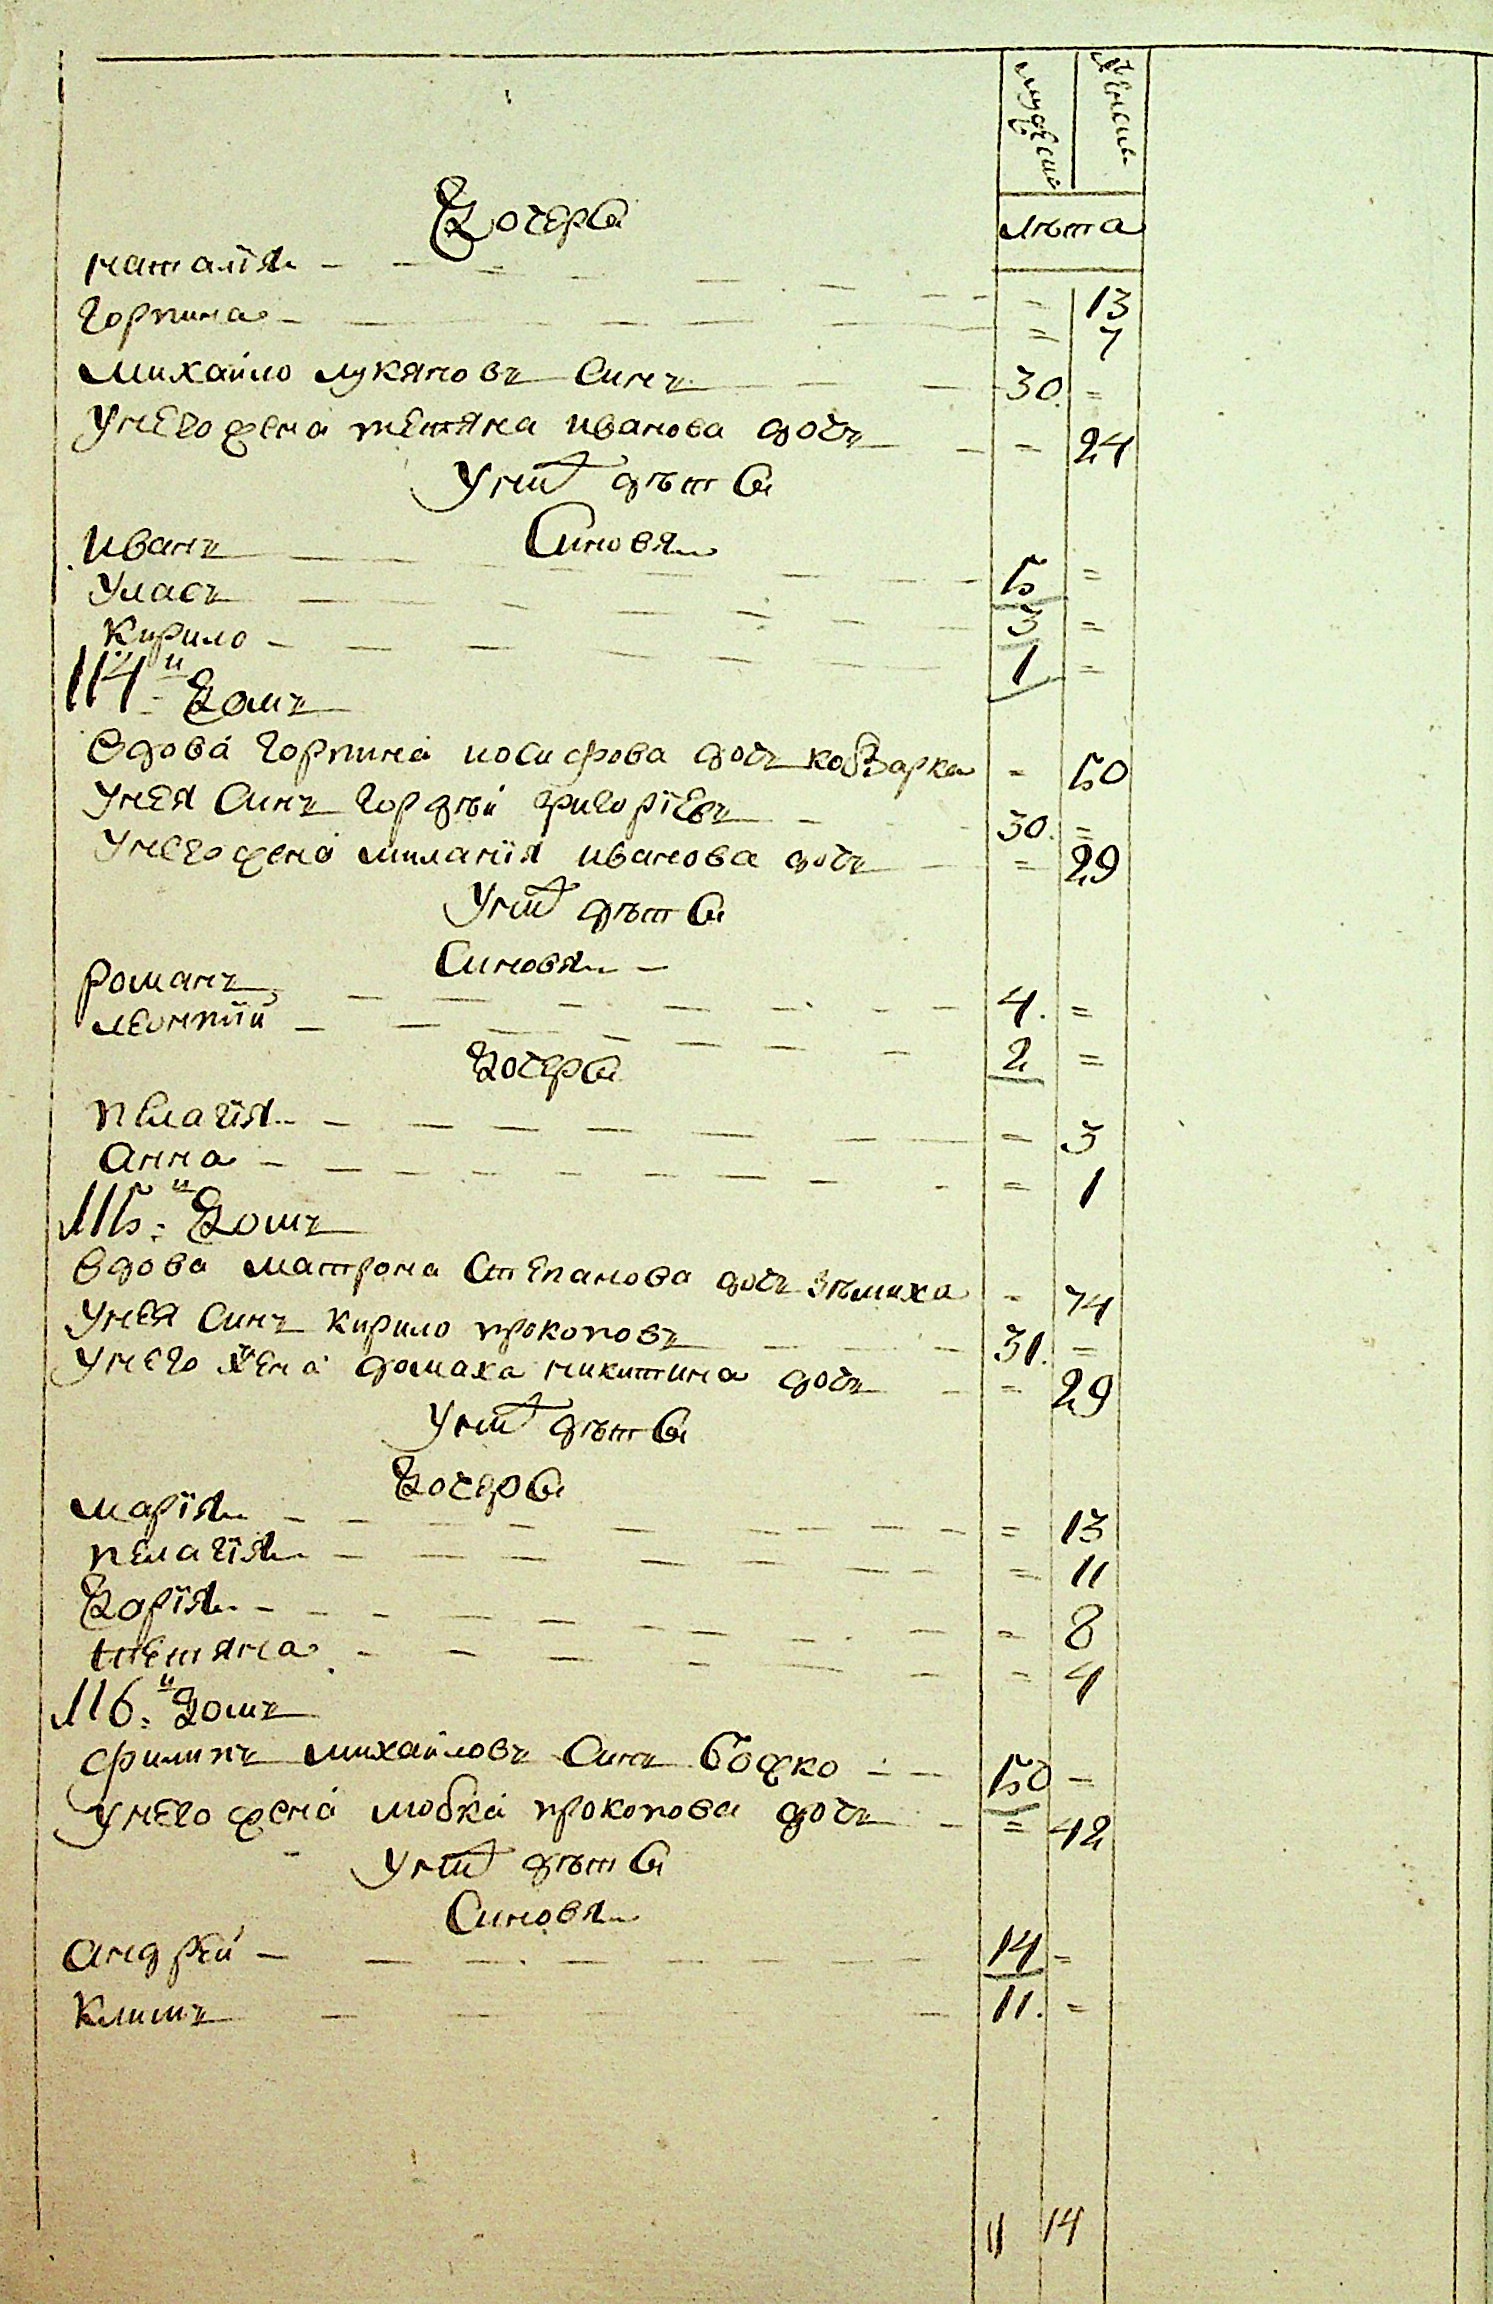 мужеский женскъ
лѣта
Дочери
наталія = 13
горпина = 7
михайло лукяновъ синъ 30. =
Унего жена тетяна иванова дочъ = 24
Унихъ дѣти
Синовя
иванъ 5 =
Уласъ 3 =
Кирило 1 =
114й Домъ
Вдова горпина иосифова дочъ кобзарка = 50
Унея Синъ гордѣй григоріевъ 30. =
Унего жена миланія иванова дочъ = 29
Унихъ дѣти
Синовя
романъ 4. =
леонтій 2 =
Дочери
пелагія = 3
Анна = 1
115й Домъ
Вдова матрона Степанова дочъ зѣмиха = 74
Унея Синъ Кирило прокоповъ 31. =
Унего жена домаха никитина дочъ = 29
Унихъ дѣти
Дочери
марія = 13
пелагія = 11
Дарія = 8
тетяна = 4
116й Домъ
филипъ михайловъ Синъ Божко 50 =
Унего жена любка прокопова дочъ = 42
Унихъ дѣти
Синовя
Андрей 14 =
Климъ 11. =
11 14